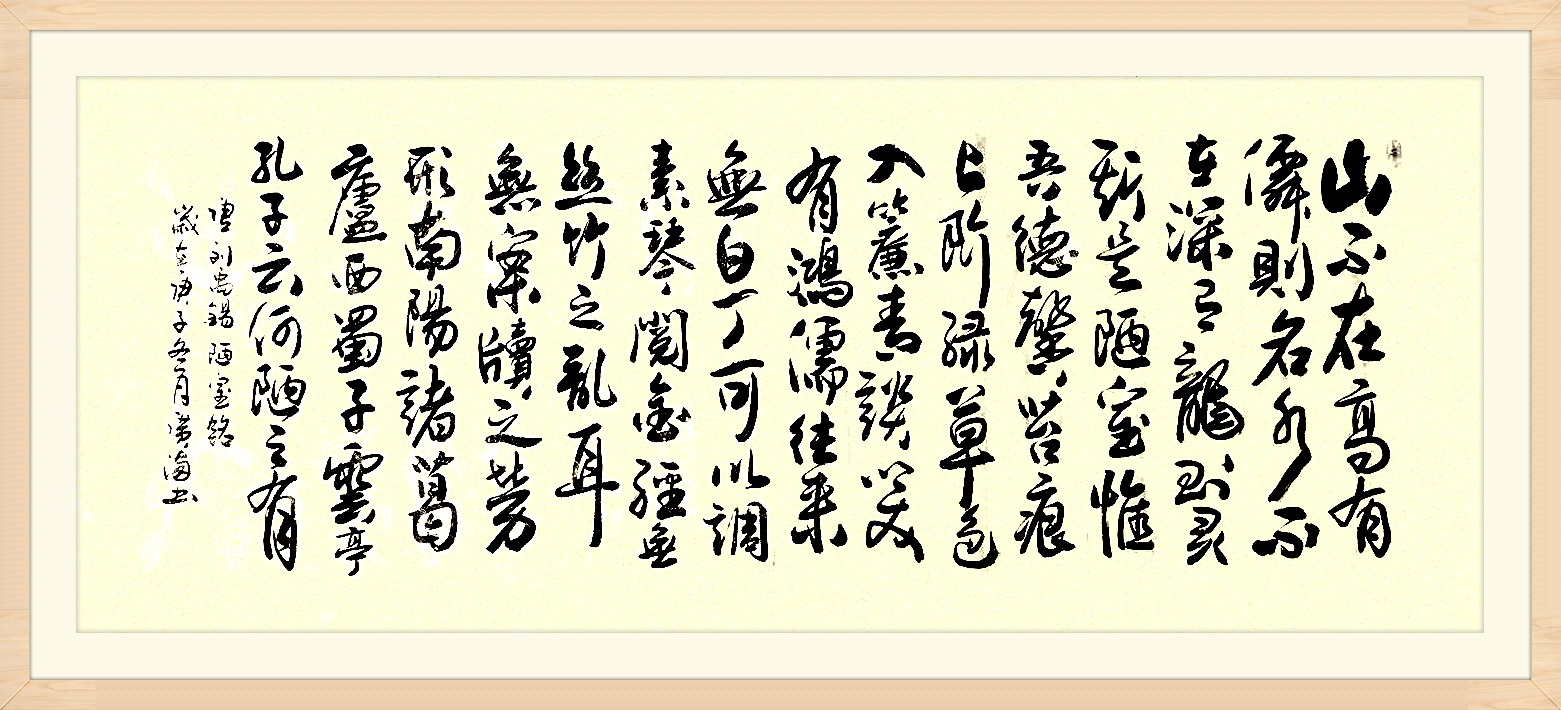 山不在高有
僊則名水不
在深有龍則灵
斯是陋室惟
吾德馨苔痕
上阶綠草色
入簾青談笑
有鴻儒往来
無白丁可以調
素琴閱金經無
絲竹之亂耳
無案牘之勞
形南陽諸葛
廬西蜀子雲亭
孔子云何陋之有
唐刘禹錫陋室銘
歲在庚子冬月海书